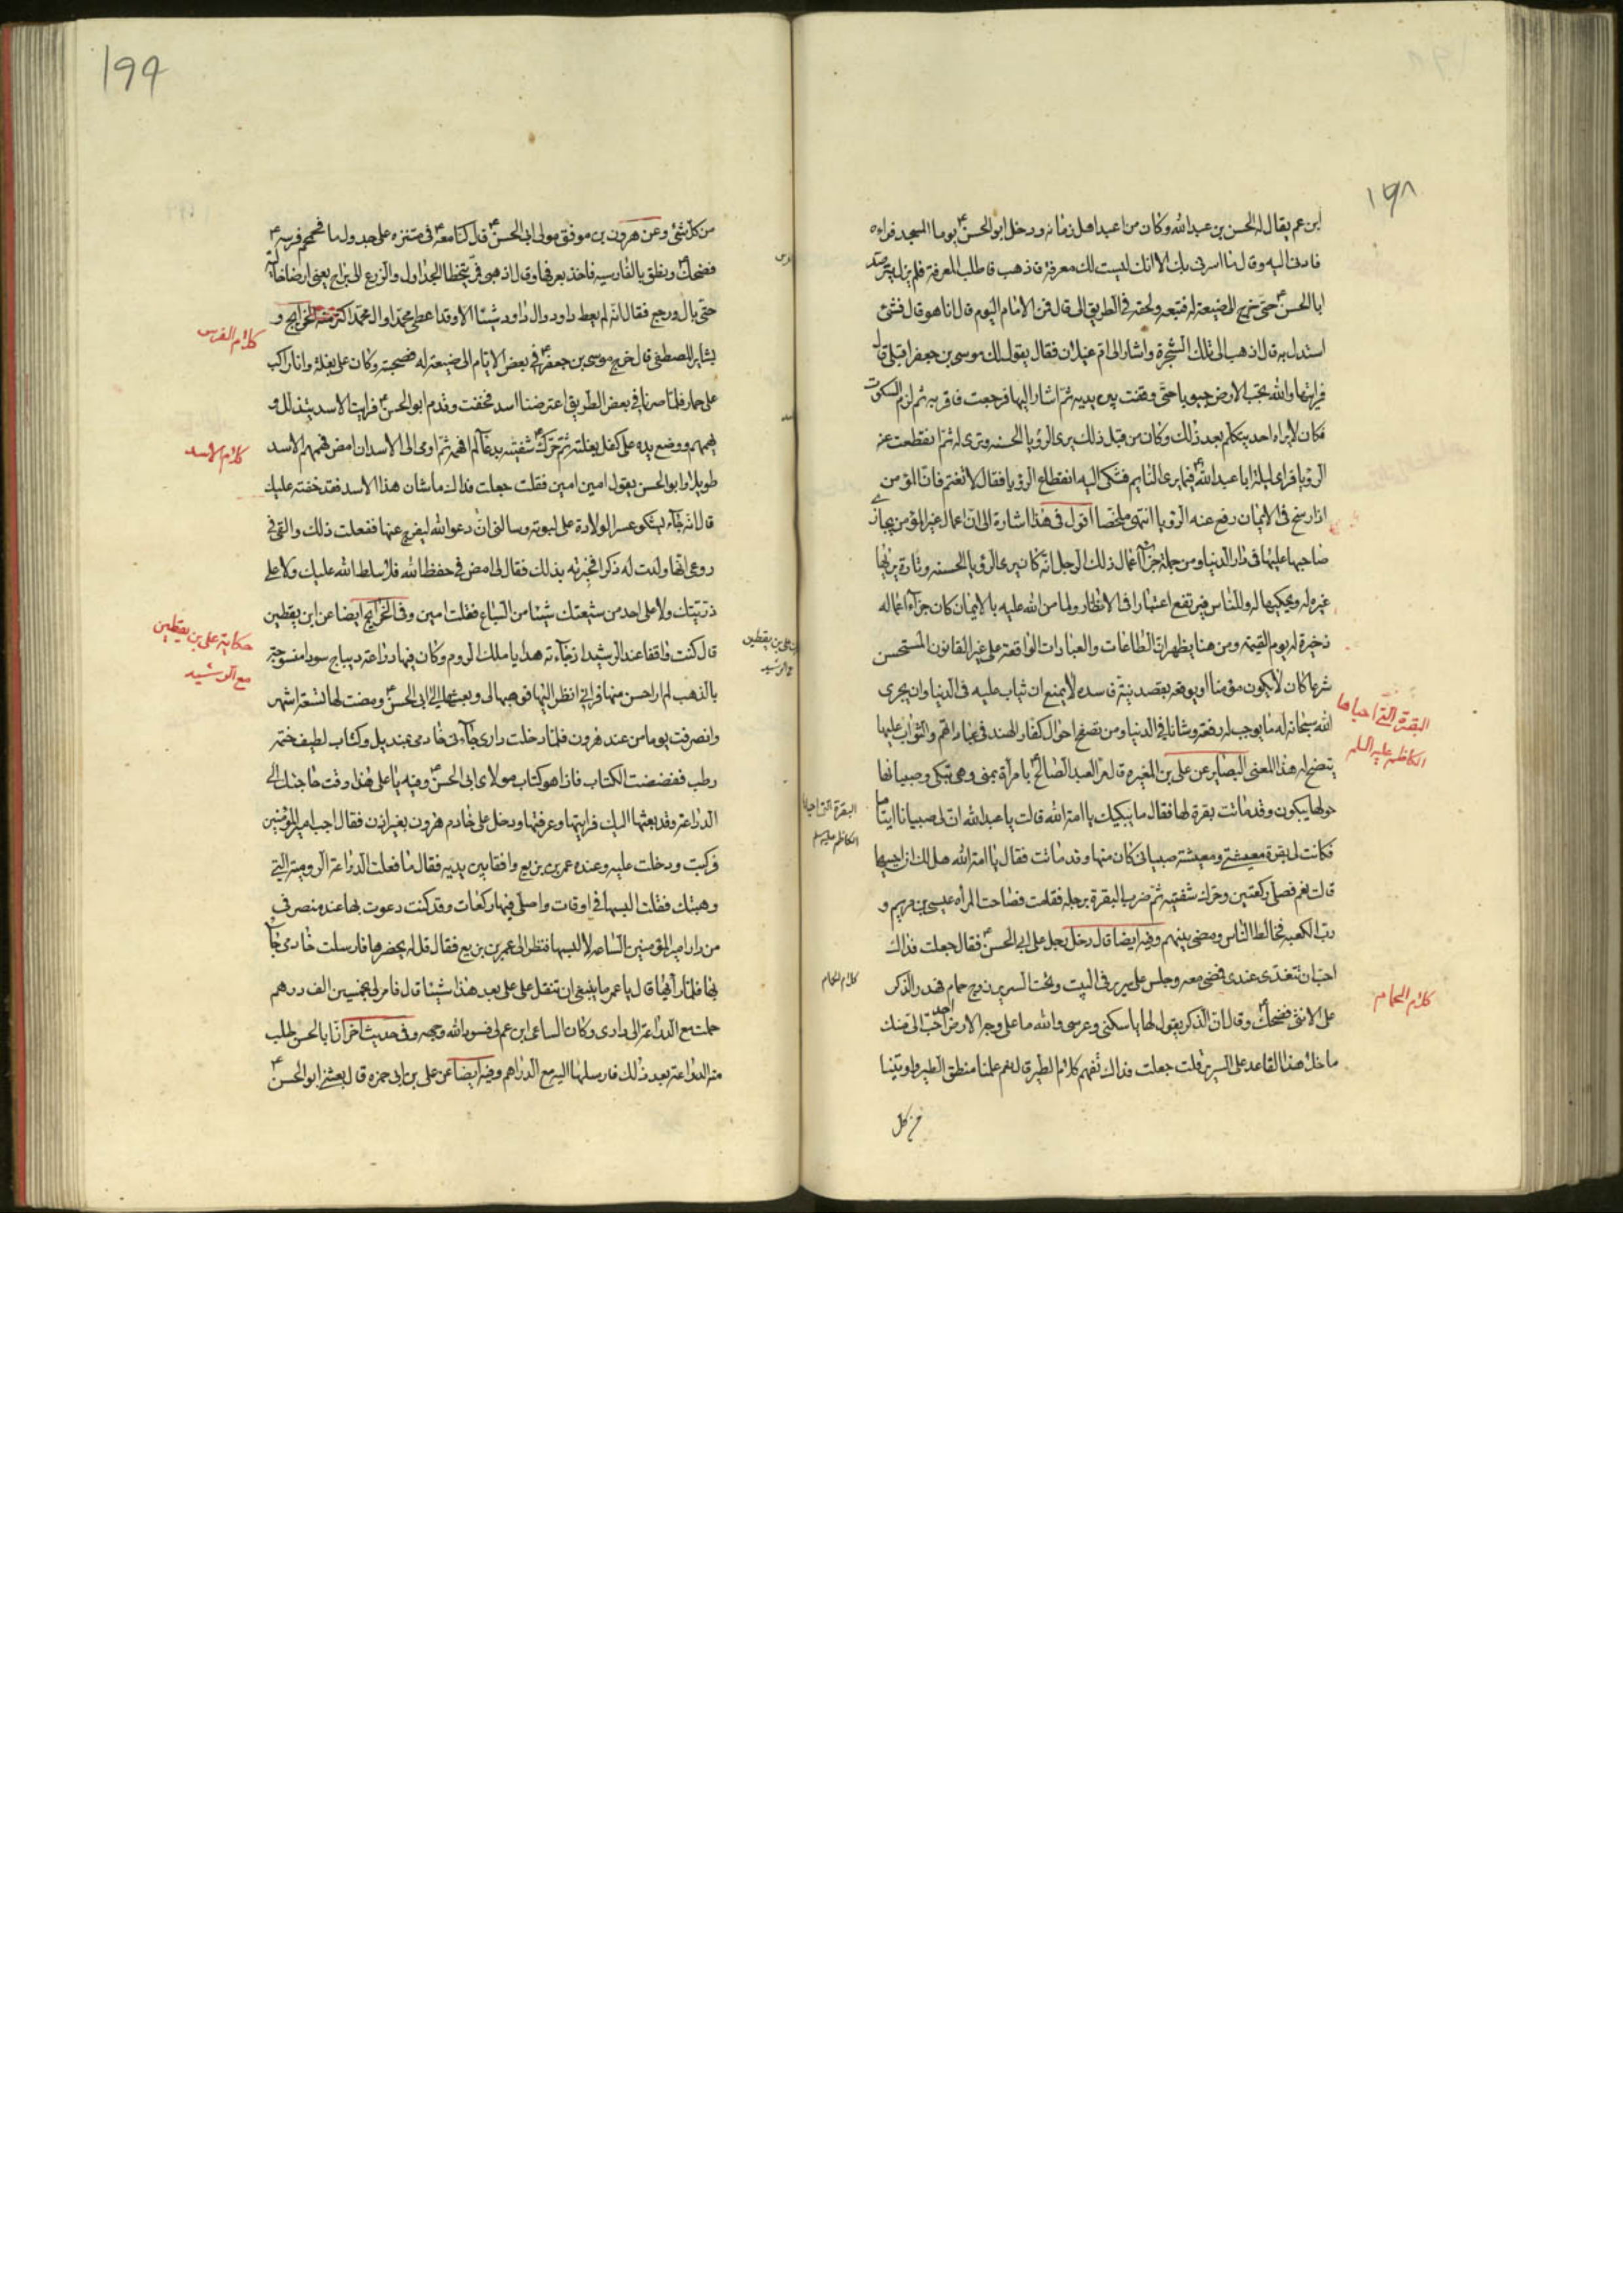 ١٩٨
ابن عم يقال له الحسن بن عبدالله وكان من اعبد اهل زمانه ودخل ابو الحسن ع يوما المسجد فراءه
فادنى اليه وقال ما اسرنى بك الا انك ليست لك معرفة فاذهب فاطلب المعرفة فلم يزل يترصد
ابا الحسن ع حتى خرج الى ضيعة له فتبعه ولحقه فى الطريق الى قال فمن الامام اليوم قال انا هو قال فشئ
استدل به قال اذهب الى تلك الشجرة واشار الى ام غيلان فقال يقول لك موسى بن جعفر اقبلى قال
فرايتها والله تجب الارض جبوبا حتى وقفت بين يديه ثم اشار اليها فرجعت فاقر به ثم لزم السكوت
فكان لا يراه احد يتكلم بعد ذلك وكان من قبل ذلك يرى الرؤيا الحسنه وترى له ثم انقطعت عنه
الرؤيا فراى ليلة ابا عبدالله ع فيما يرى النايم فشكى اليه انقطاع الرؤيا فقال لا تغتم فان المؤمن
اذا رسخ فى الايمان رفع عنه الرؤيا انتهى ملخصا اقول فى هذا اشارة الى ان اعمال غير المؤمن يجازى
صاحبها عليها فى دار الدنيا ومن جملة جزآء اعمال ذلك الرجل انه كان يرى الرؤيا الحسنه وتارة يريها
غيره له ويحكيها له وللناس فيرتفع اعتبارا فى الانظار ولما من الله عليه بالايمان كان جزآء اعماله
ذخيرة له يوم القيمه ومن هنا يظهر ان الطاعات والعبادات الواقعة على غير القانون المستحسن
شرعا كان لا يكون مؤمنا او يوقعه بقصد نية فاسده لا يمنع ان يثاب عليه فى الدنيا وان يجرى
الله سبحانه له ما يوجب له رفعة وشانا فى الدنيا ومن تصفح احوال كفار الهند فى عباداتهم والثواب عليها
يتضح له هذا المعنى البصاير عن على بن المغيره قال مر العبد الصالح ع بامرأة بمنى وهى تبكى وصبيانها
حولها يبكون وقد ماتت بقرة لها فقال ما يبكيك يا امة الله قالت يا عبدالله ان لى صبيانا ايتاما
فكانت لى بقرة معيشتى ومعيشة صبيانى كان منها وقد ماتت فقال يا امة الله هل لك ان احييها
قالت نعم فصلى ركعتين وحرك شفتيه ثم ضرب البقرة برجله فقامت فصاحت المرأه عيسى بن مريم و
رب الكعبه فخالط الناس ومضى بينهم وفيه ايضا قال دخل رجل على ابى الحسن ع فقال جعلت فداك
احب ان تتغدى عندى فمضى معه وجلس على سرير فى البيت وتحت السرير زوج حمام فهدر الذكر
على الانثى فضحك ع وقال ان الذكر يقول لها يا سكنى وعرسى والله ما على وجه الارض احد احب الى منك
ما خلا هذا القاعد على السرير قلت جعلت فداك تفهم كلام الطير قال نعم علمنا منطق الطير واوتينا
من كل
البقرة التى احياها
الكاظم عليه السلم
كلام الحمام
البقرة التى احياها
الكاظم عليه السلم
كلام الحمام
١٩٩
من كل شئ وعن هرون بن موفق مولى ابى الحسن ع قال كنا معه ع فى متنزه على جدول ما فحمحم فرسه ع
فضحك ع ونطق بالفارسيه فاخذ بعرفها وقال اذهبى فمر يتخطا الجداول والزرع الى براح يعنى ارضا خالية
حتى بال ورجع فقال انه لم يعط داود وال داود شيئا الا وقد اعطى محمدا وال محمد اكثر منه الخرايج و
بشاير المصطفى قال خرج موسى بن جعفر ع فى بعض الايام الى ضيعة له فصحبته وكان على بغلة وانا راكب
على حمار فلما صرنا فى بعض الطريق اعترضنا اسد فخفت وتقدم ابو الحسن ع فرايت الاسد يتذلل و
يهمهم ووضع يده على كفل بغلته ثم حرك ع شفتيه بدعآء لم افهمه ثم اومى الى الاسد ان امض فهمهم الاسد
طويلا وابو الحسن يقول امين امين فقلت جعلت فداك ما شان هذا الاسد فقد خفته عليك
قال انه جآء يشكو عسر الولادة على لبوته وسالنى ان ادعوا الله ليفرج عنها ففعلت ذلك والقى فى
روعى انها ولدت له ذكرا فخبرته بذلك فقال لى امض فى حفظ الله فلا سلط الله عليك ولا على
ذريتك ولا على احد من شيعتك شيئا من السباع فقلت امين وفى الخرايج ايضا عن ابن يقطين
قال كنت واقفا عند الرشيد اذ جآءته هدايا ملك الروم وكان فيها دراعة ديباج سودا منسوجة
بالذهب لم ار احسن منها فرانى انظر اليها فوهبها لى وبعثتها الى ابى الحسن ع ومضت لها تسعة اشهر
وانصرفت يوما من عند هرون فلما دخلت دارى جآءنى خادمى بمنديل وكتاب لطيف ختمه
رطب ففضضت الكتاب فاذا هو كتاب مولاى ابى الحسن ع وفيه يا على هذا وقت حاجتك الى
الدراعة وقد بعثتها اليك فرايتها وعرفتها ودخل على خادم هرون بغير اذن فقال اجب امير المؤمنين
فركبت ودخلت عليه وعنده عمر بن بزيع واقفا بين يديه فقال ما فعلت الدراعة الرومية التى
وهبتك فقلت البسها فى اوقات واصلى فيها ركعات وقد كنت دعوت بها عند منصرفى
من دار امير المؤمنين الساعه لالبسها فنظر الى عمر بن بزيع فقال قل له يحضرها فارسلت خادمى جآء
بها فلما رآها قال يا عمر ما ينبغى ان تنقل على على بعد هذا شيئا قال فامر لى بخمسين الف درهم
حملت مع الدراعة الى دارى وكان الساعى ابن عم لى فسود الله وجهه وفى حديث آخر ان ابا الحسن ع طلب
منه الدراعة بعد ذلك فارسلها اليه مع الدراهم وفيه ايضا عن على بن ابى حمزه قال بعثنى ابو الحسن ع
كلام الفرس
كلام الاسد
حكاية على بن يقطين
مع الرشيد
على بن يقطين
مع الرشيد